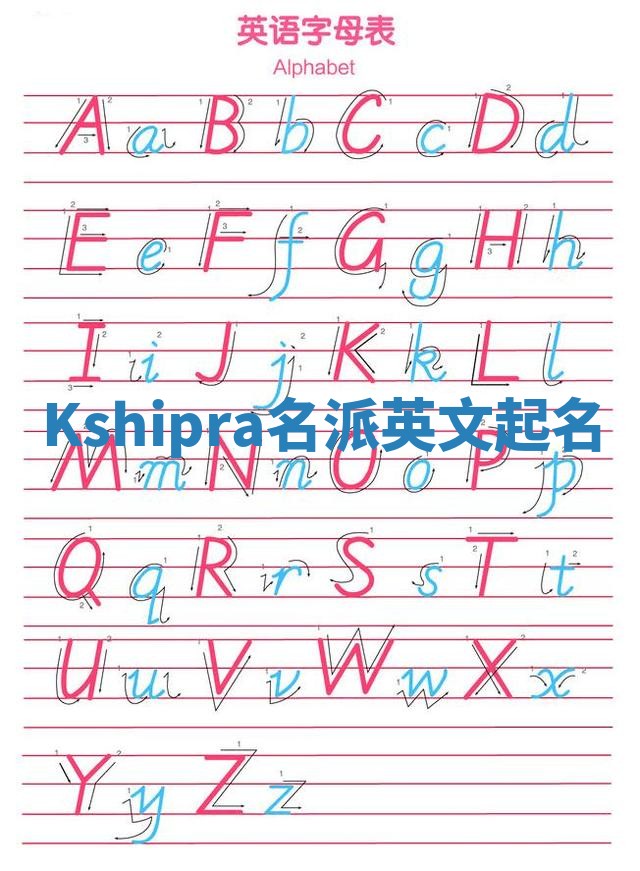 英语字母表
Alphabet
A a B b C c D d
E e F f G g H h
I i J j K k L l
Kshipra名派英文起名
M m N n O o P p
Q q R r S s T t
U u V v W w X x
Y y Z z